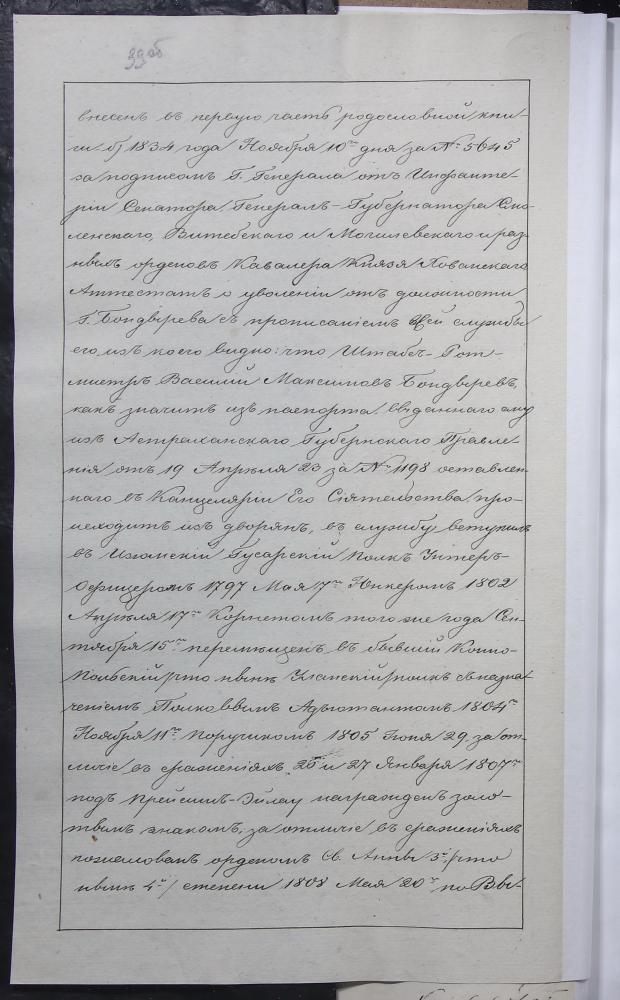 99об
внесенъ въ первую часть родословной кни-
ги б) 1834 года Ноября 10го дня за № 5645
за подписомъ Г. Генерала отъ Инфанте-
рии Сенатора Генералъ-Губернатора Смо-
ленскаго, Витебскаго и Могилевскаго и раз-
нымъ орденовъ Кавалера Князя Хованскаго
Аттестатъ о уволеніи отъ должности
Г. Бондырева съ прописаніемъ всей службы
его, изъ коего видно: что Штабсъ-Рот-
мистръ Василий Максимовъ Бондыревъ,
какъ значитъ изъ паспорта, выданнаго ему
изъ Астраханскаго Губернскаго Правле-
нія отъ 19 Апрѣля 23 за № 1198 оставлен-
наго въ Канцеляріи Его Сіятельства про-
исходитъ изъ дворянъ, въ службу вступилъ
въ Изюмскій Гусарскій Полкъ Унтеръ-
Офицеромъ 1797 Мая 7го Юнкеромъ 1802
Апрѣля 17го Корнетомъ того же года Сен-
тября 15го перемѣщенъ въ бывшій Конно-
Польскій /что нынѣ Уланскій/ полкъ съ назна-
ченіемъ Полковымъ Адъютантомъ 1804го
Ноября 11го Поручикомъ 1805 Іюня 29, за от-
личіе въ сраженіяхъ 26 и 27 Января 1807го
подъ Прейсишъ-Эйлау награжденъ золо-
тымъ знакомъ, за отличіе въ сраженіяхъ
пожалованъ орденомъ Св. Анны 3й /что
нынѣ 4й/ степени 1808 Мая 20го, по Вы-